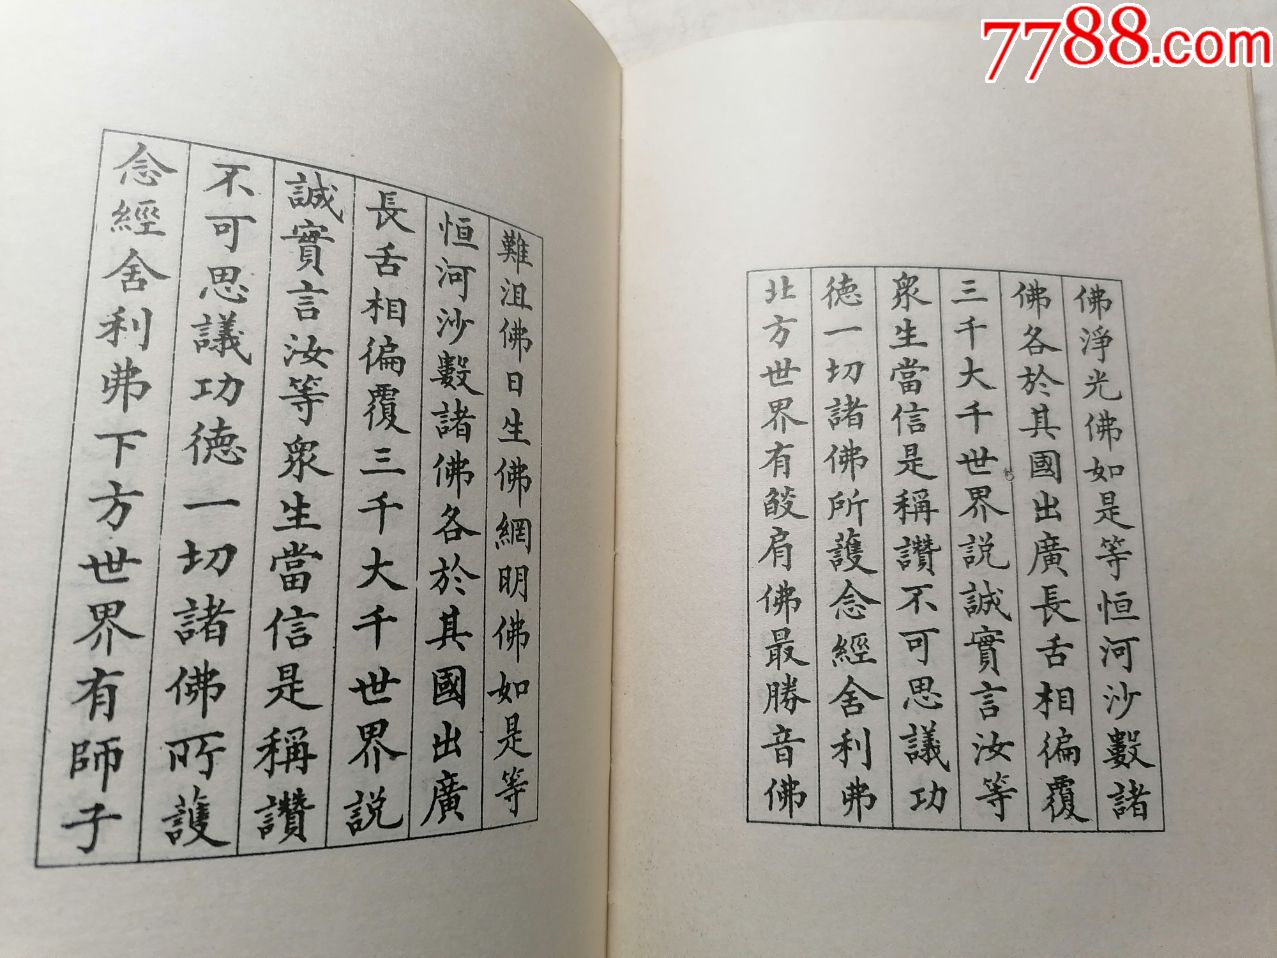 7788.com
佛淨光佛如是等恒河沙數諸
佛各於其國出廣長舌相徧覆
三千大千世界説誠實言汝等
衆生當信是稱讚不可思議功
德一切諸佛所護念經舍利弗
北方世界有燄肩佛最勝音佛
難沮佛日生佛網明佛如是等
恒河沙數諸佛各於其國出廣
長舌相徧覆三千大千世界説
誠實言汝等衆生當信是稱讚
不可思議功德一切諸佛所護
念經舍利弗下方世界有師子